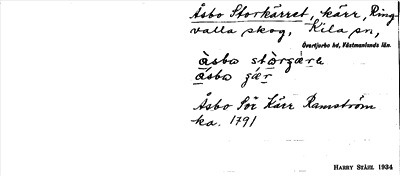 Åsbo Storkärret, kärr, Ring
valla skog, Kila sn,
Övertjurbo hd, Västmanlands län.
åsbo stòrgæ̀ra
åsbo gær
Åsbo Sör Kärr Ramström
ka. 1791
HARRY STÅHL 1934